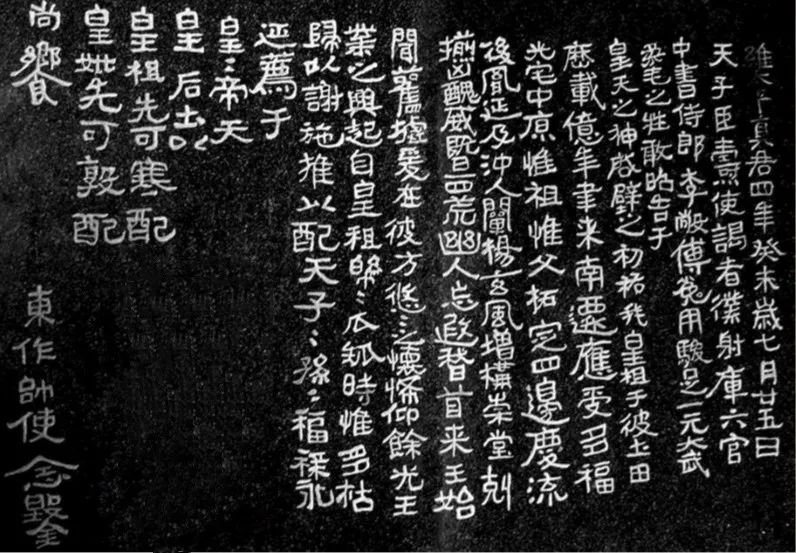 維太平真君四年癸未歲七月廿五日
天子臣燾使謁者僕射庫六官
中書侍郎李敞傅㝹用駿足一元大武
柔毛之牲敢昭告于
皇天之神啓辟之初祐我皇祖于彼土田
歷載億年聿来南遷應受多福
光宅中原惟祖惟父拓定四邊慶流
後胤延及沖人闡揚玄風增構崇堂剋
揃凶醜威暨四荒幽人忘遐稽首来王始
聞舊墟爰在彼方悠〻之懷希仰餘光王
業之興起自皇祖綿〻瓜瓞時惟多祜
歸以謝施推以配天子〻孫〻福祿永
延薦于
皇〻帝天
皇 后土以
皇祖先可寒配
皇妣先可敦配
尚饗
東作帥使念鑿